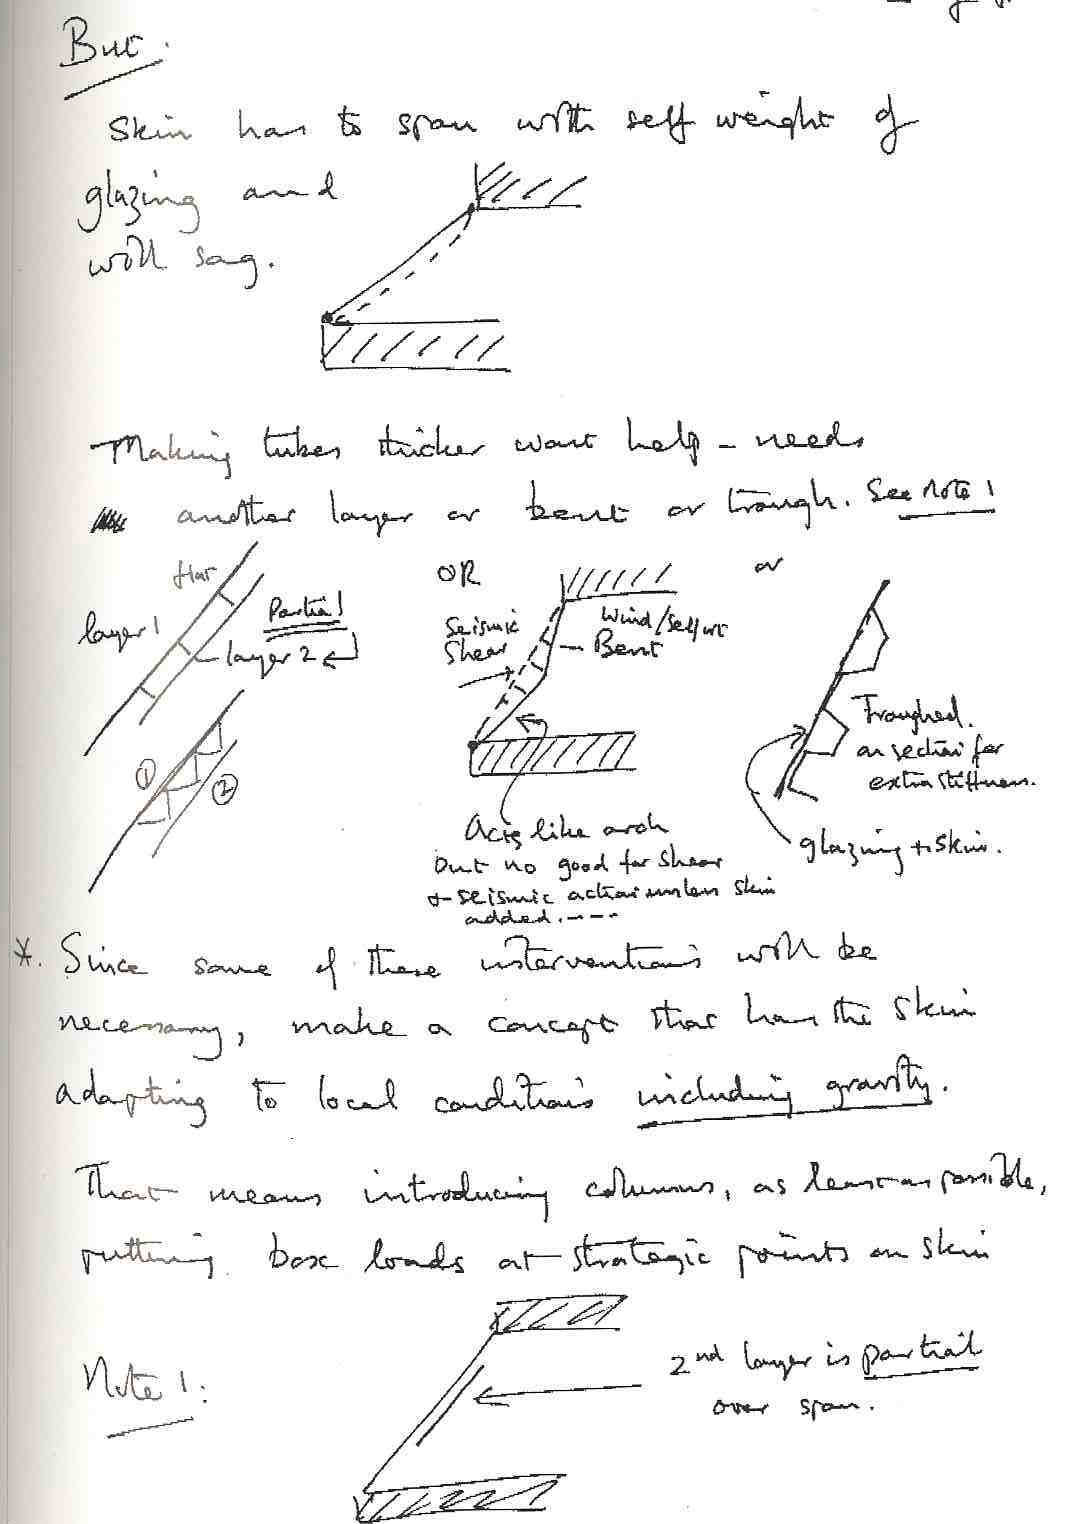 But.
Skin has to span with self weight of
glazing and
will sag.
Making tubes thicker wont help - needs
another layer or bent or trough. See note 1
flat
layer 1
Partial
layer 2
①
②
OR
Seismic
Shear
Wind/self wt
Bent
Acts like arch
but no good for shear
+ seismic action unless skin
added.----
or
Troughed.
on section for
extra stiffness.
glazing + skin.
*. Since some of these interventions will be
necessary, make a concept that has the skin
adapting to local conditions including gravity.
That means introducing columns, as least as possible,
putting box loads at strategic points on skin
Note 1:
2nd layer is partial
over span.